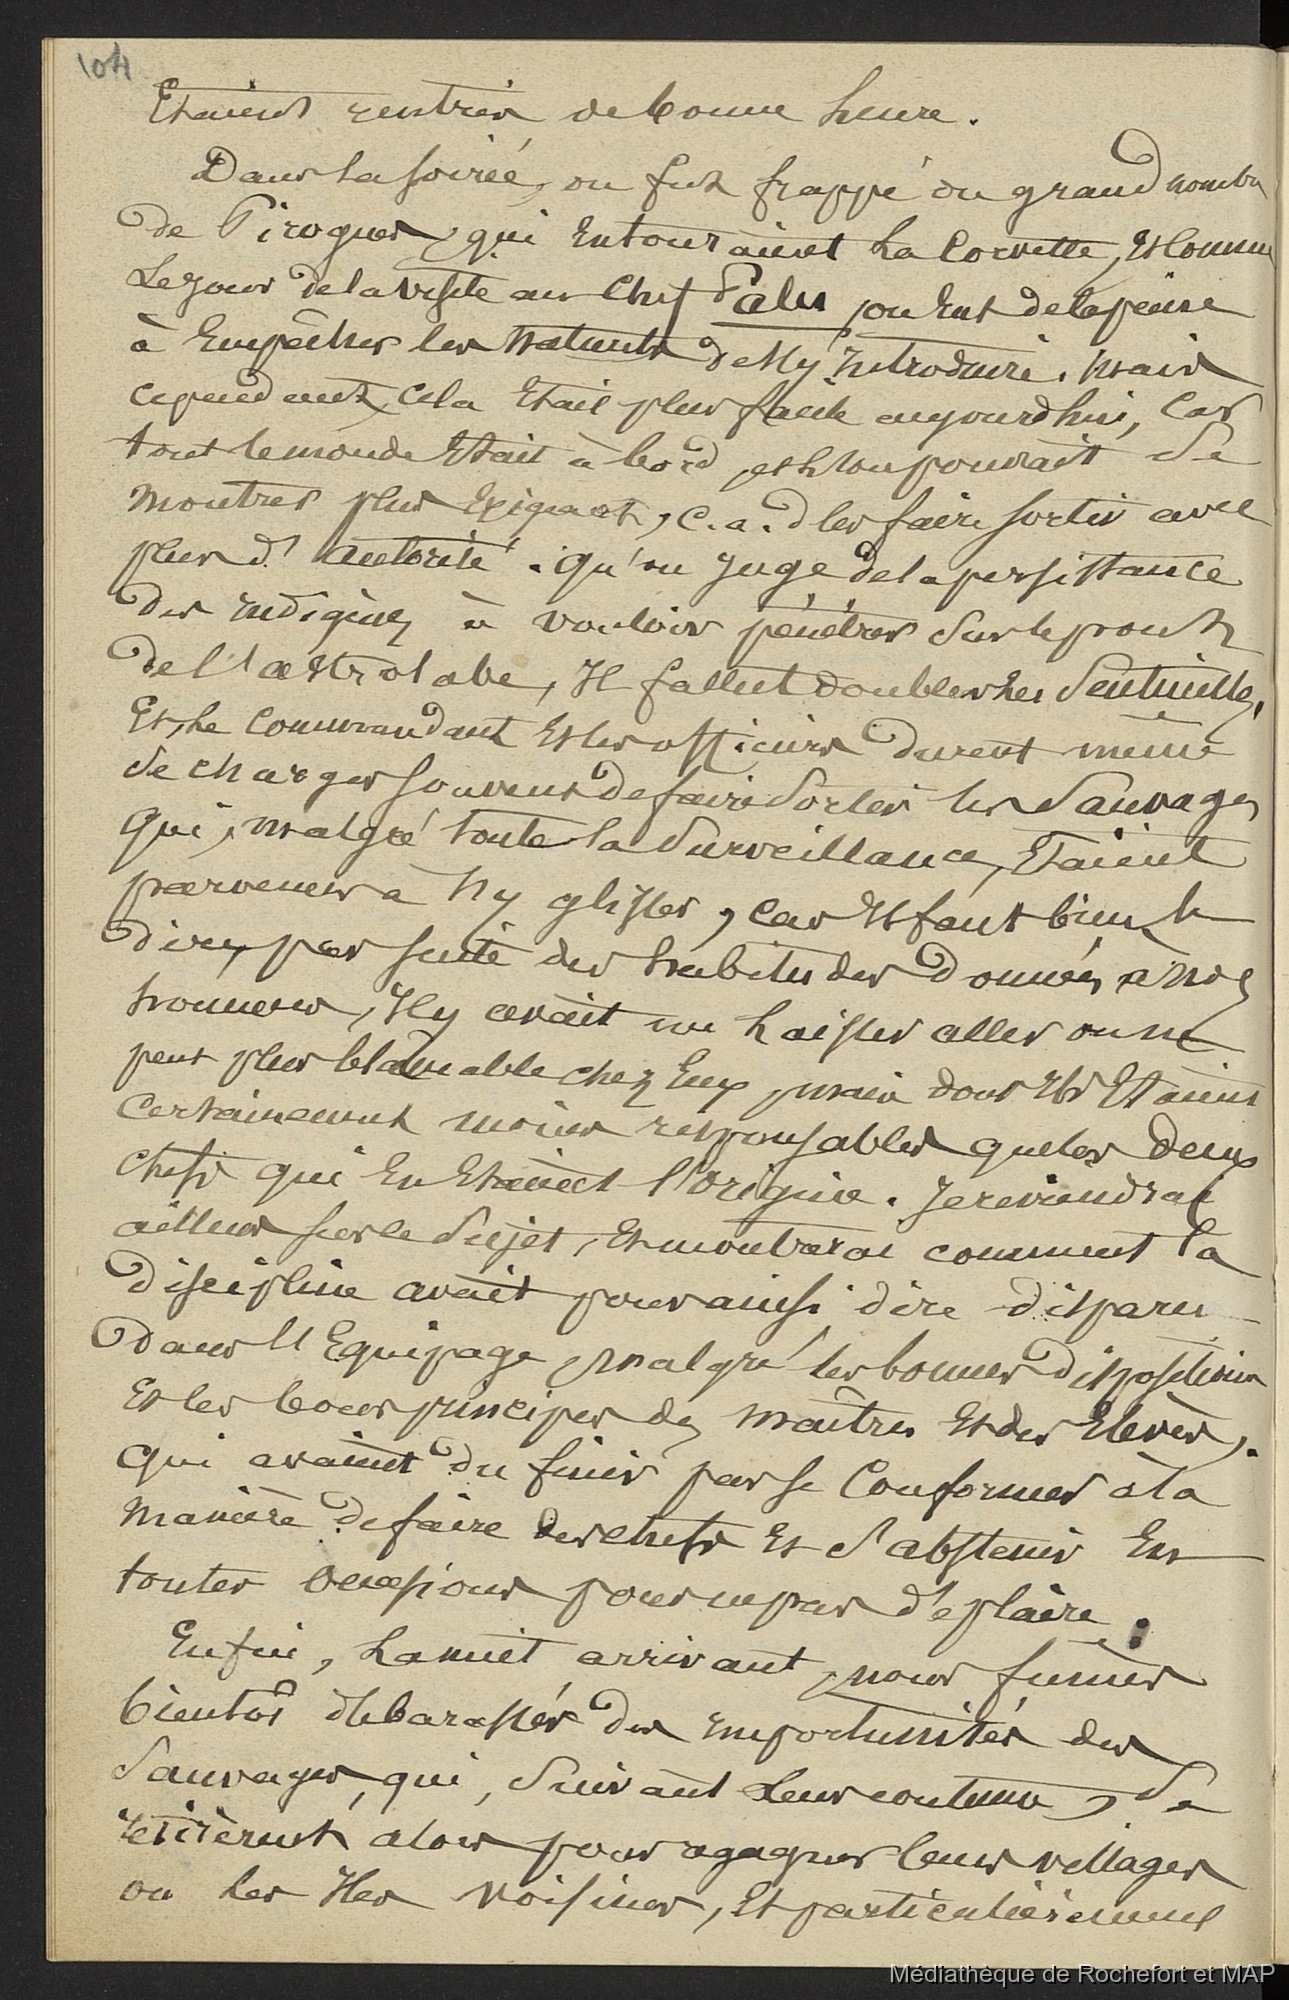 104
Etaient rentrés de bonne heure.
Dans la soirée, on fut frappé du grand nombre
de Pirogues, qui Entouraient La Corvette, Et Comme
Le jour de la visite au Chef Palu, on Eut de la peine
à Empêcher les Naturels de s'y Introduire. Mais
cependant, cela Etait plus facile aujourdhui, Car
tout le monde Etait à bord, et l'on pouvait Se
montrer plus Exigeant, c.a.d les faire sortir avec
plus d'autorité. qu'on Juge de la persistance
des indigènes à vouloir pénétrer Sur le pont
de l'astrolabe, Il fallut doubler les Sentinelles,
Et, Le Commandant Et les officiers durent même
Se charger souvent de faire Sortir les Sauvages
qui, malgré toute la Surveillance, Etaient
parvenus à s'y glisser, Car Il faut bien le
dire, par suite des habitudes données à nos
hommes, Il y avait un Laisser aller on ne
peut plus blamable chez Eux, mais dont Ils Etaient
certainement moins responsables que les deux
chefs qui En Etaient l'origine. Je reviendrai
ailleurs sur le Sujet, Et montrerai comment la
discipline avait pour ainsi dire disparu
dans l'Equipage, malgré les bonnes dispositions
Et les bons principes des maîtres Et des Elèves,
qui avaient du finir par se Conformer à la
manière de faire des chefs Et S'abstenir En
toutes occasions pour ne pas déplaire.
Enfin, La nuit arrivant, nous fumes
bientot débarassés des importunités des
Sauvages, qui, Suivant Leur coutume, Se
retirèrent alors pour regagner leurs villages
ou les Iles voisines, Et particulièrement
Médiathèque de Rochefort et MAP